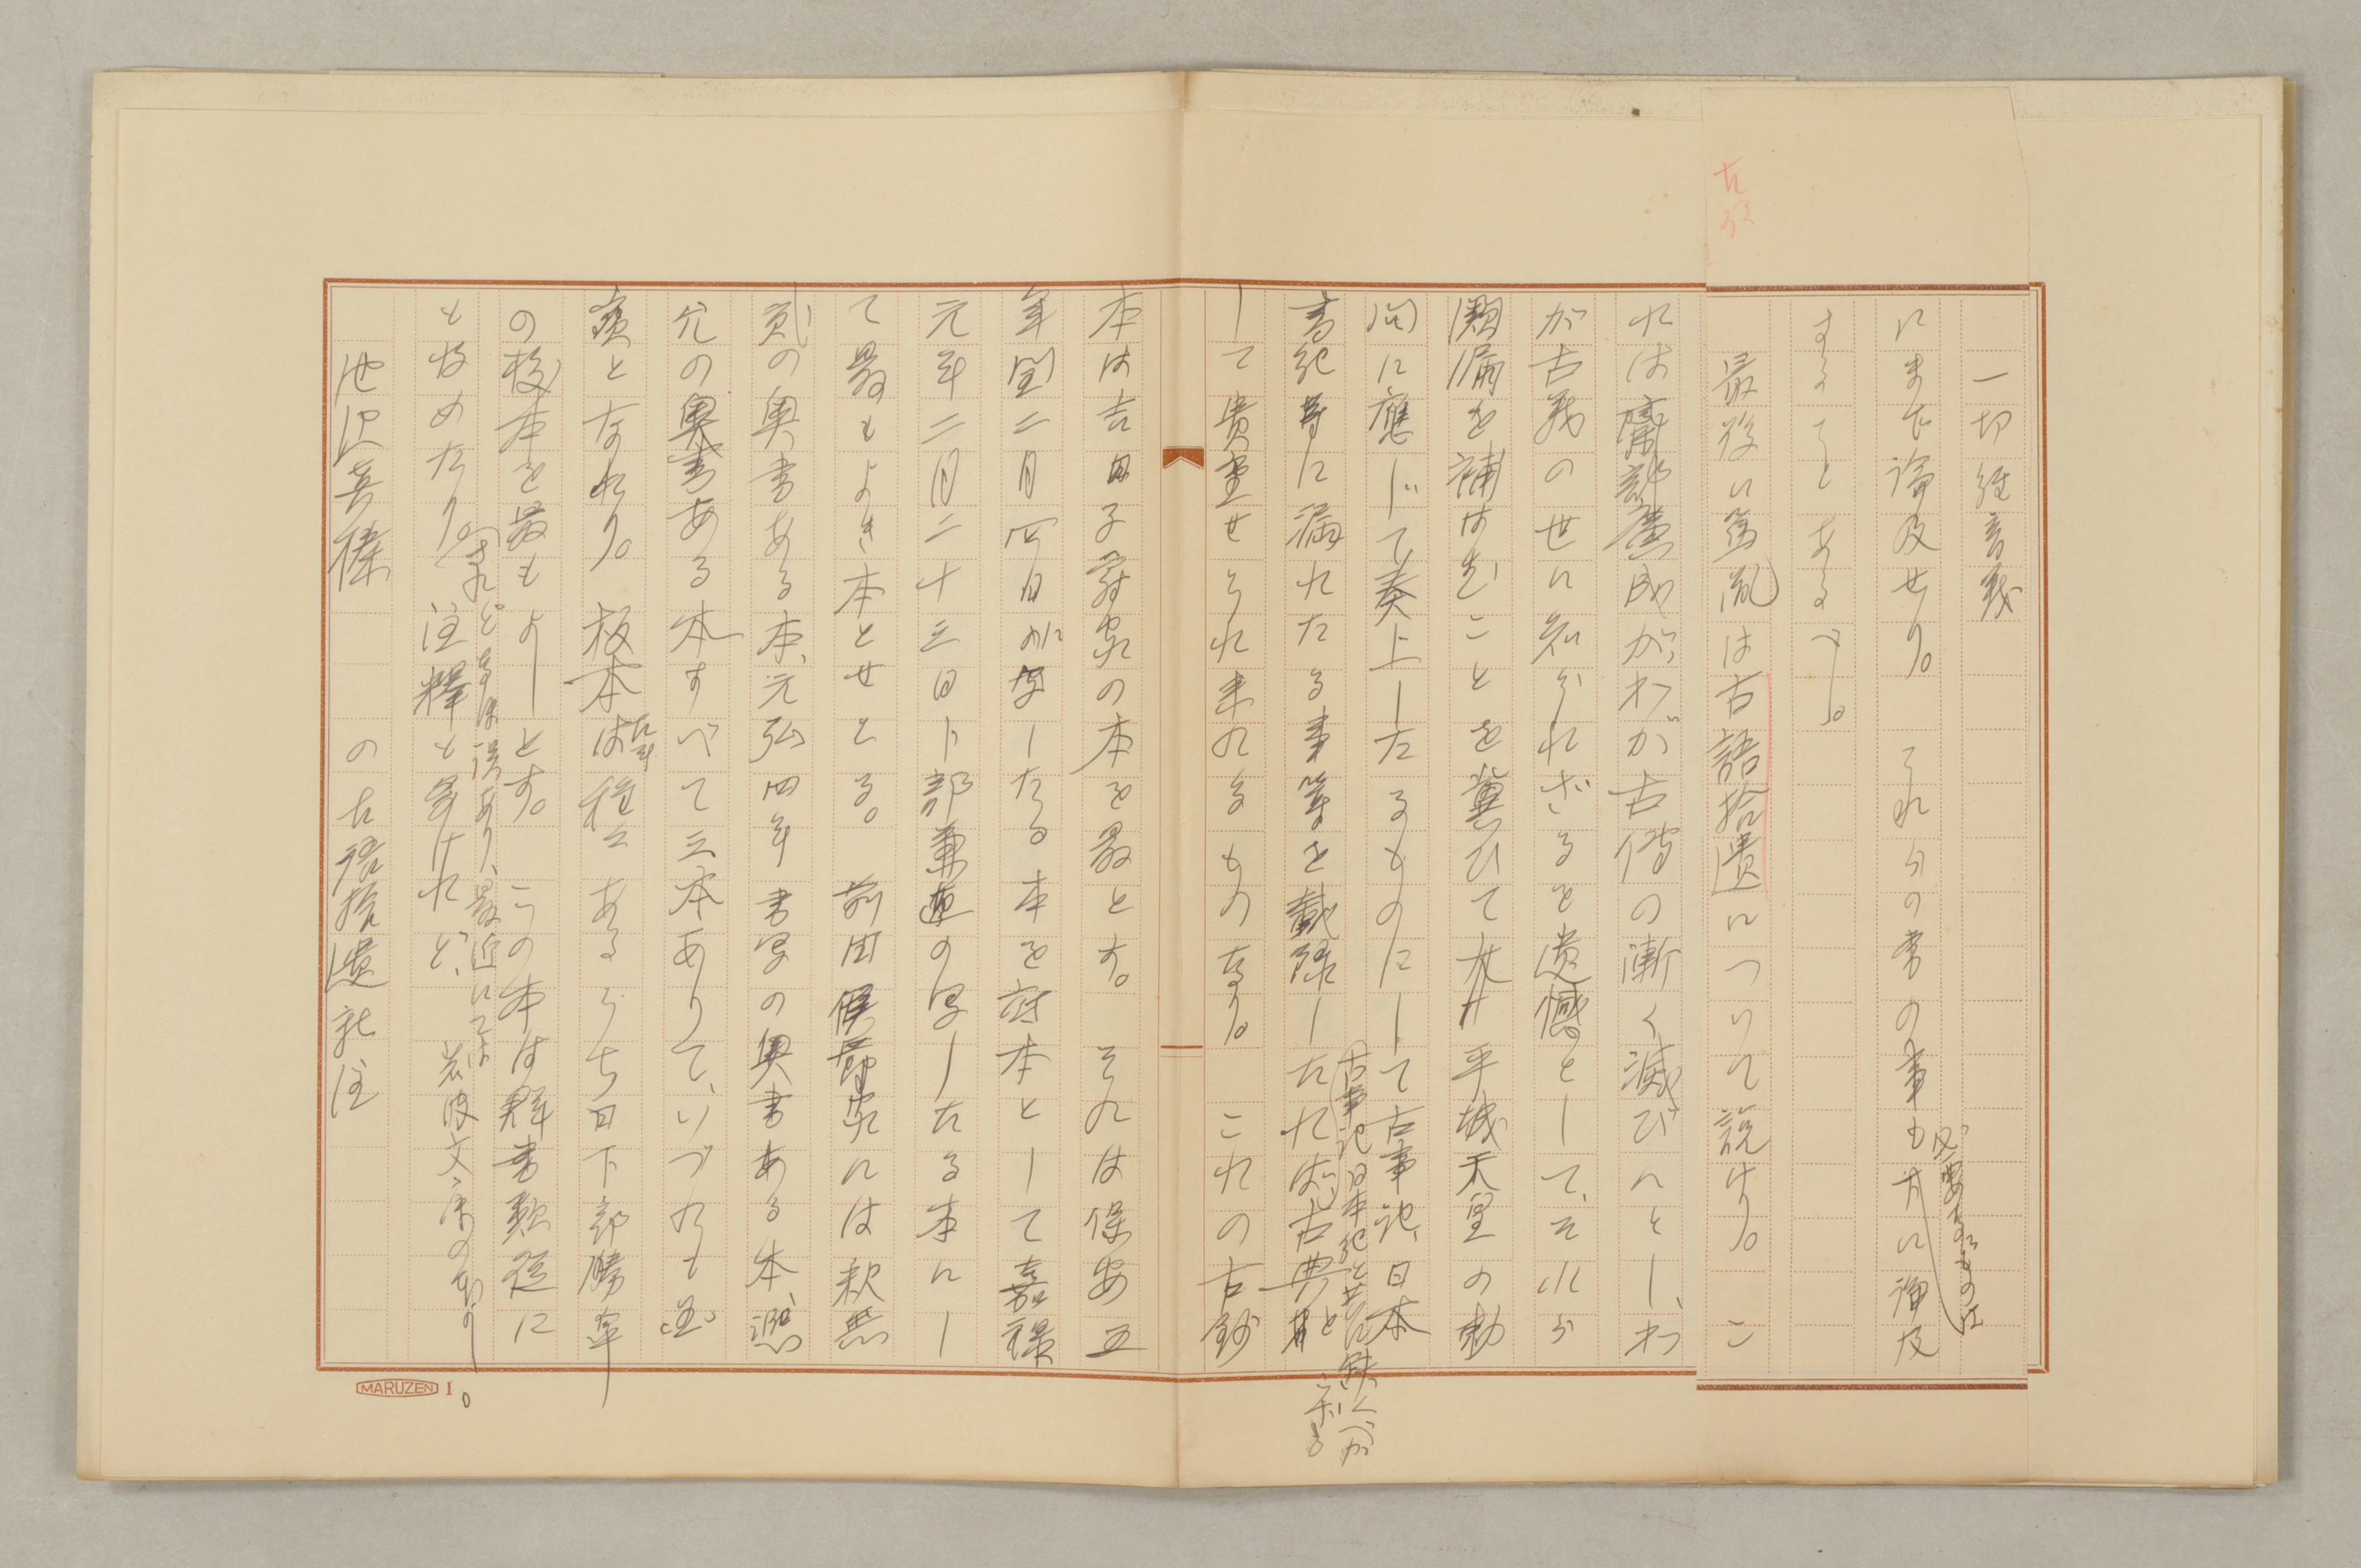 古語
一切經音義
にまで論及せり。それらの書の事も
必要なるものは
共に論及
することあるべし。
最後に篤胤は古語拾遺について説けり。こ
れは齋部廣成が、わが古傳の漸く滅びんとし、わ
が古義の世に知られざるを遺憾として、それら
闕漏を補はむことを冀ひて
平城天皇の勅
問に應じて奏上したるものにして古事記、日本
書紀等に漏れたる事等を載錄したれば、
古事記日本紀と共に缺くべか
らざる
古典と
して貴重せられ來れるものなり。これの古鈔
本は吉田子爵家の本を最とす。それは保安五
年閏二月四日に
寫したる本を对本として嘉祿
元年二月二十三日卜部兼直の寫したる本にし
て最もよき本とせらる。前田侯爵家には釋無
貳の奧書ある本、元弘四年書寫の奧書ある本、
凞允の奧書ある本すべて三本ありて、いづれも
寶となれり。板本は
種々あるうち日下部勝皐
の校本を最もよしとす。この本は群書類從に
も收めたり。
されどなほ誤あり、最近にては
岩波文庫のあり。
注釋も多けれど、
池邊眞榛の古語拾遺新注
MARUZEN I